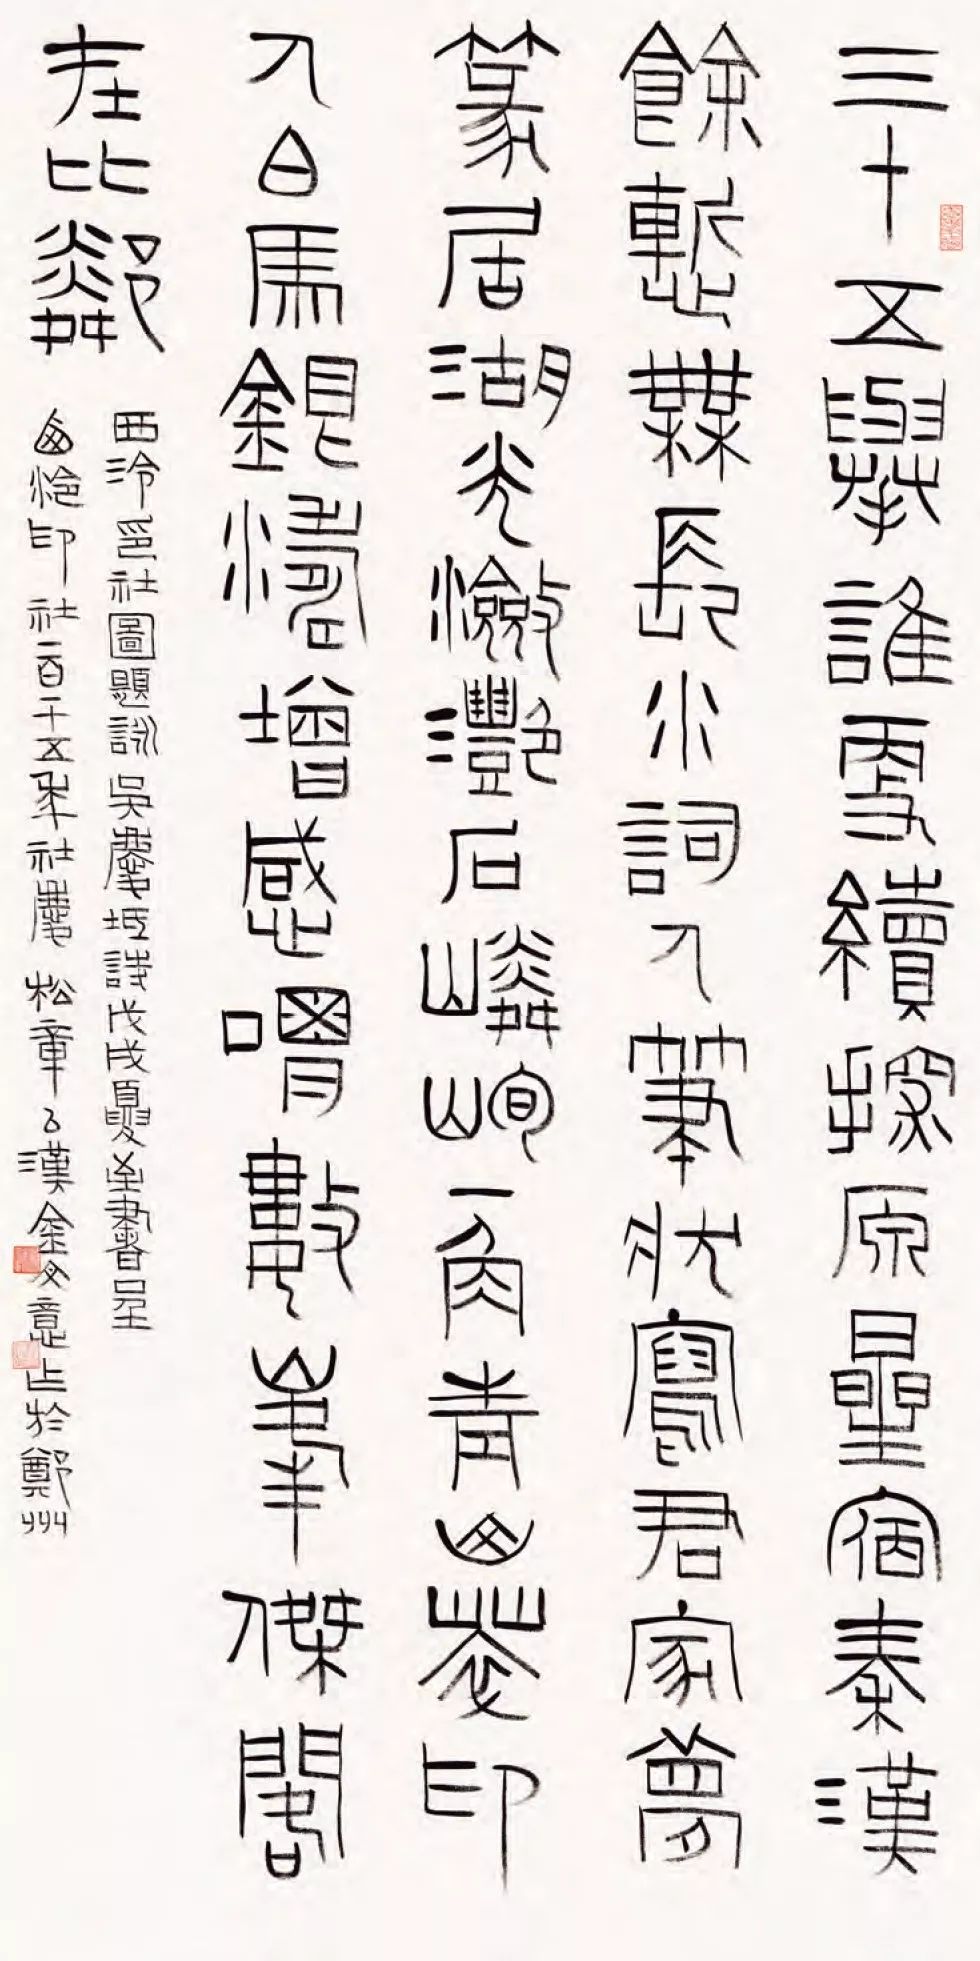 三十五舉誰續探原星宿秦漢
餘慙無長水詞人筆狀寫君家夢
篆居湖光瀲灩石嶙峋一角青印
人白馬銀濤增感喟數峯傑閣
在比鄰
西泠印社圖題詠吳慶坻詩戊戌夏至書呈
西泠印社百十五年社慶松章以漢金文意作於鄭州